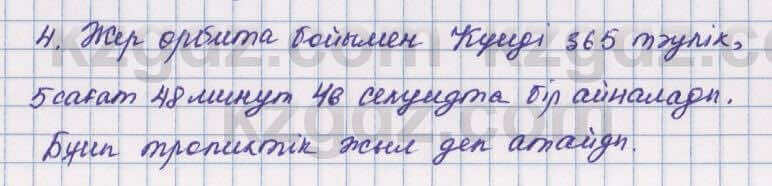 4. Жер орбита бойымен Күнді 365 тәулік,
5 сағат 48 минут 46 секундта бір айналады.
Бұны тропиктік жыл деп атайды.